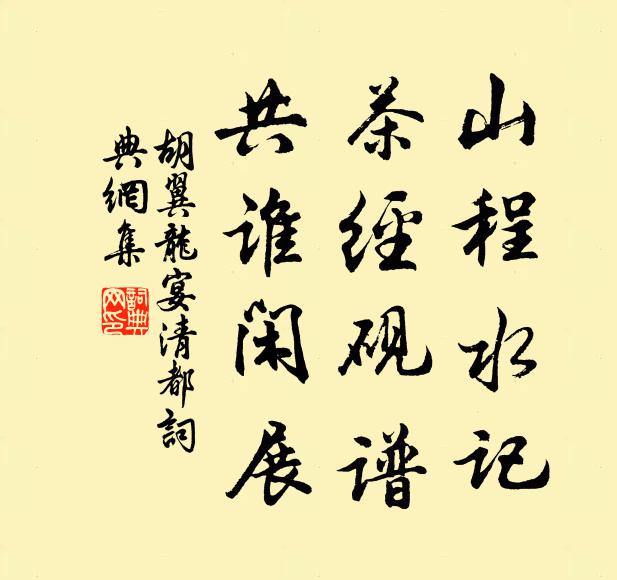 山程水记
茶經砚谱
共谁閑展
胡翼龍宴清都詞
典網集
詞典
网印